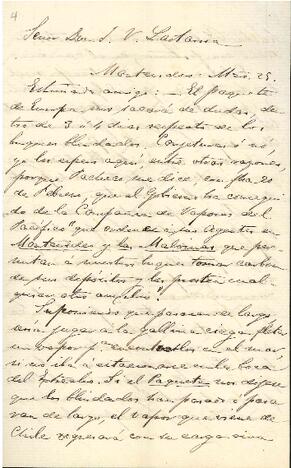 4
Señor Don J. V. Lastarria
Montevideo: Mzo. 25.
Estimado amigo: — El paquete
de Europa nos sacará de dudas, den-
tro de 3 ó 4 dias respecto de los
buques blindados.
yo los espero aquí entre otras razones
porque Pacheco me dice con fha. 20
de Febrero, que el Gobierno ha consegui-
do de la Compañia de Vapores del
Pacífico que ordene a sus Agentes en
Montevideo y las Malvinas que per-
mitan á nuestros buques tomar carbon
de sus depósitos i les presten cual-
quiera otro auxilio".
Suponiendo que pasaran de largo
seria jugar a la gallina ciega fletar
un vapor pa. en el mar
si no iba á estacionarse en la boca
del Estrecho. Si el Paquete nos dijese
que los blindados han pasado ó pasa-
ran de largo, el vapor que viene de
Chile regresará con su carga